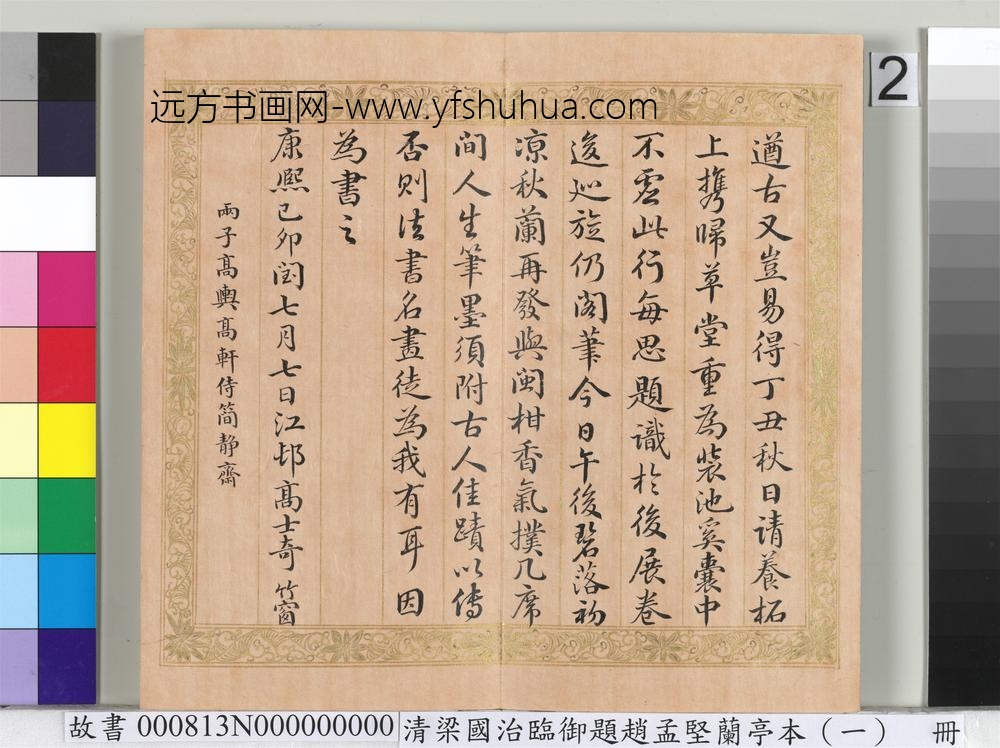 远方书画网-www.yfshuhua.com
2
遒古又豈易得丁丑秋日请養柘
上攜歸草堂重為裝池奚囊中
不虛此行每思題識於後展卷
逡巡旋仍阁筆今日午後碧落初
凉秋蘭再發與闽柑香氣撲几席
间人生筆墨須附古人佳蹟以傳
否则法書名畫徒為我有耳因
為書之
康熙己卯闰七月七日江邨高士奇竹窗
兩子高輿高軒侍简静齋
故書 000813N000000000 清梁國治臨御題趙孟堅蘭亭本（一） 冊